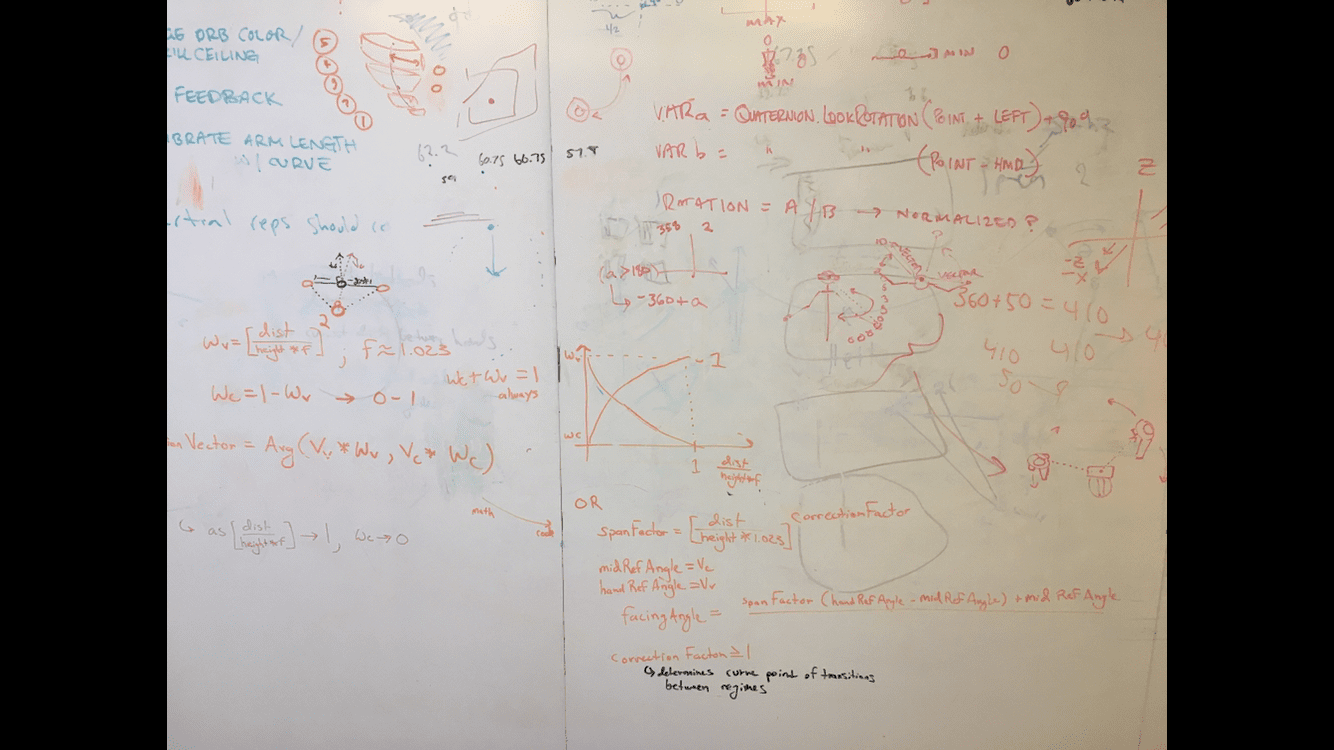 ORB COLOR/
CEILING
5
4
3
2
1
FEEDBACK
BRATE ARM LENGTH
w/ CURVE
62.2
591
60.75 66.75
57.8
reps should
Wv = [dist / height * f]^2 , f ≈ 1.023
Wc + Wv = 1
always
Wc = 1 - Wv → 0 - 1
Vector = Avg(Vv * Wv , Vc * Wc)
math
code
↳ as [dist / height * f] → 1, Wc → 0
MAX
0
MIN
MIN 0
VAR a = QUATERNION.LOOKROTATION(POINT + LEFT) + 90.9
VAR b = " " (POINT - HMD)
ROTATION = A / B → NORMALIZED?
358 2
(a > 180)
↳ -360 + a
Z
-Z
-X
VECTOR
VECTOR
360 + 50 = 410
410 410
50
Wv
1
Wc
1
dist / height * f
OR
spanFactor = [dist / height * 1.023] correctionFactor
midRefAngle = Vc
handRefAngle = Vv
facingAngle = spanFactor (handRefAngle - midRefAngle) + midRefAngle
Correction Factor ≥ 1
↳ determines curve point of transitions
between regimes